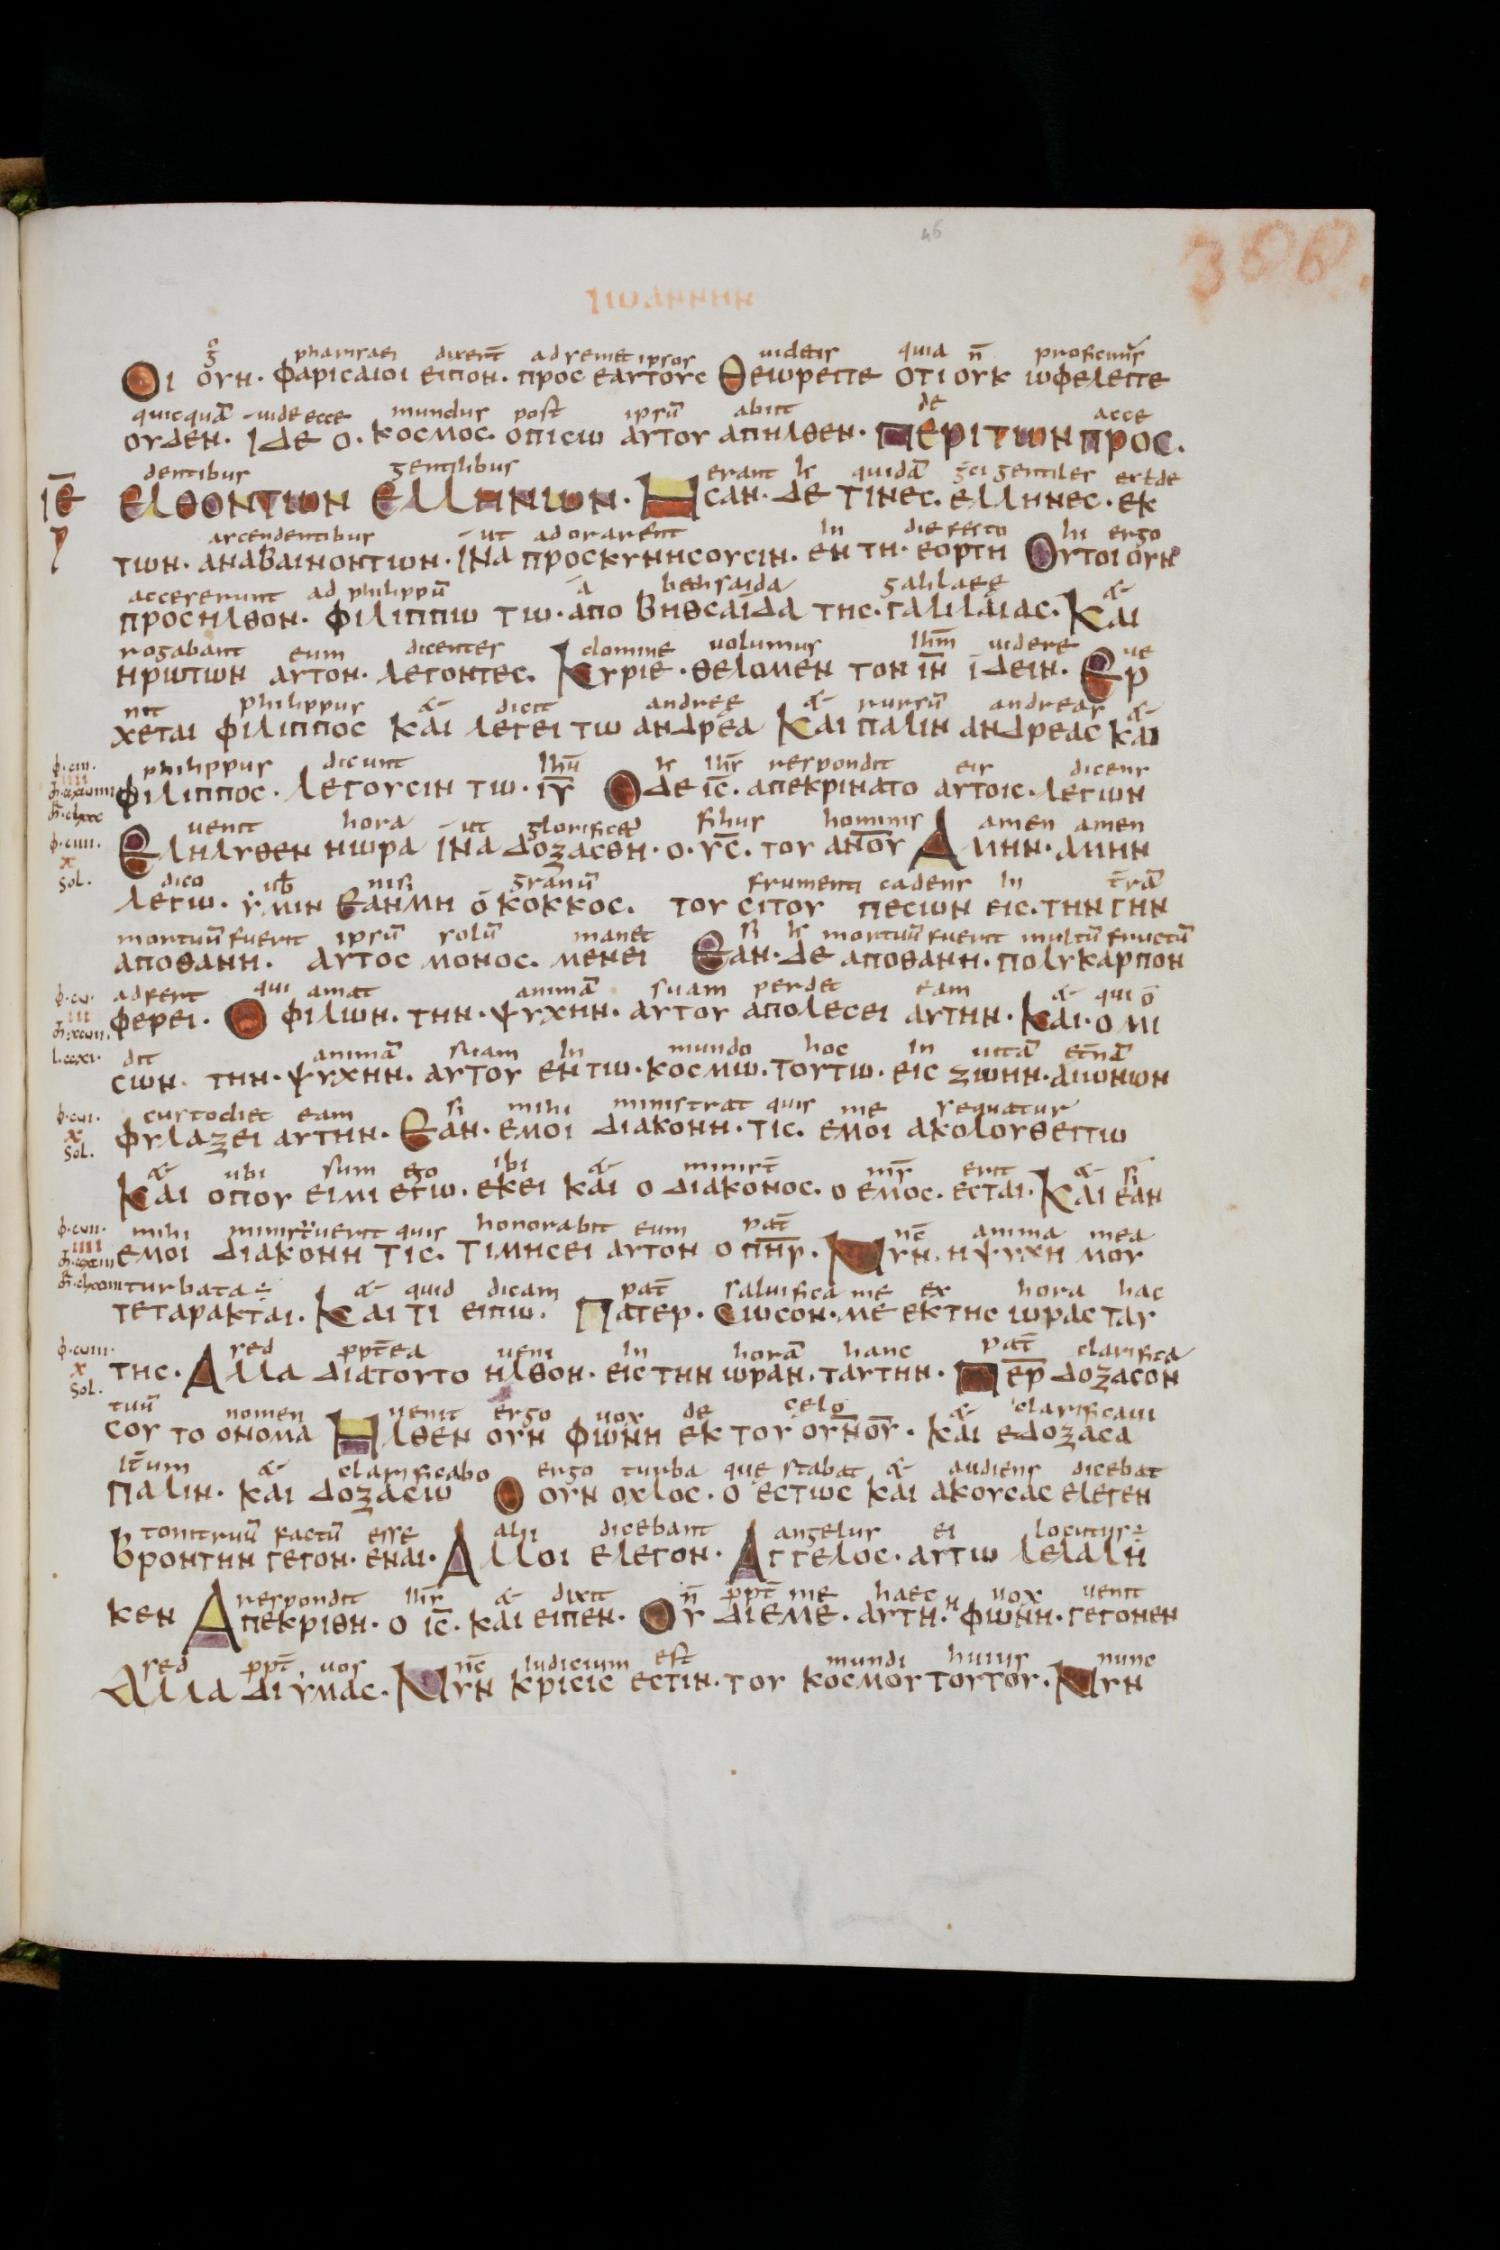 46
366.
ΙΩΑΝΝΗΝ
g̊ pharisaei dixer̄t ad semet ipsos uidetis quia n̄ proficimus
ΟΙ ΟΥΝ· ΦΑΡΙСΑΙΟΙ ΕΙΠΟΝ· ΠΡΟС ΕΑΥΤΟΥС ΘΕΩΡΕΙΤΕ ΟΤΙ ΟΥΚ ΩΦΕΛΕΙΤΕ
quicquā uide ecce mundus post ipsū abiit de acce
ΟΥΔΕΝ· ΙΔΕ Ο· ΚΟСΜΟС· ΟΠΙСΩ ΑΥΤΟΥ ΑΠΗΛΘΕΝ· ΠΕΡΙ ΤΩΝ ΠΡΟС·
dentibus gentilibus erant h̄ quidā gentiles ex
ΙΕ̄ ΕΛΘΟΝΤΩΝ ΕΛΛΗΝΩΝ· ΗСΑΝ· ΔΕ ΤΙΝΕС· ΕΛΛΗΝΕС· ΕΚ
ascendentibus ut adorarent in die festo hi ergo
ΤΩΝ· ΑΝΑΒΑΙΝΟΝΤΩΝ· ΙΝΑ ΠΡΟСΚΥΝΗСΟΥСΙΝ· ΕΝ ΤΗ· ΕΟΡΤΗ ΟΥΤΟΙ ΟΥΝ
accesserunt ad philippū a bethsaida galilaee &
ΠΡΟСΗΛΘΟΝ· ΦΙΛΙΠΠΩ ΤΩ· ΑΠΟ ΒΗΘСΑΙΔΑ ΤΗС· ΓΑΛΙΛΑΙΑС· ΚΑΙ
rogabant eum dicentes domine uolumus ihm̄ uidere ue
ΗΡΩΤΩΝ ΑΥΤΟΝ· ΛΕΓΟΝΤΕС· ΚΥΡΙΕ· ΘΕΛΟΜΕΝ ΤΟΝ ΙΝ̄ ΙΔΕΙΝ· ΕΡ
nit philippus & dicit andreę & rursū andreas &
ΧΕΤΑΙ ΦΙΛΙΠΠΟС ΚΑΙ ΛΕΓΕΙ ΤΩ ΑΝΔΡΕΑ ΚΑΙ ΠΑΛΙΝ ΑΝΔΡΕΑС ΚΑΙ
philippus dicunt ihū h̄ ihs̄ respondit eis dicens
ΦΙΛΙΠΠΟС· ΛΕΓΟΥСΙΝ ΤΩ· ΙῩ Ο ΔΕ ΙС̄· ΑΠΕΚΡΙΝΑΤΟ ΑΥΤΟΙС· ΛΕΓΩΝ
uenit hora ut glorificet filius hominis amen amen
ΕΛΗΛΥΘΕΝ ΗΩΡΑ ΙΝΑ ΔΟΞΑСΘΗ· Ο· ΥС̄· ΤΟΥ ΑΝΟῩ ΑΜΗΝ· ΑΜΗΝ
x
Sol.
dico uƀ nisi granū frumenti cadens in t̄rā
ΛΕΓΩ· ΥΜΙΝ ΕΑΝΜΗ Ο ΚΟΚΚΟС· ΤΟΥ СΙΤΟΥ ΠΕСΩΝ ΕΙС· ΤΗΝ ΓΗΝ
mortuū fuerit ipsū solū manet si h̄ mortuū fuerit multū fructū
ΑΠΟΘΑΝΗ· ΑΥΤΟС ΜΟΝΟС· ΜΕΝΕΙ ΕΑΝ· ΔΕ ΑΠΟΘΑΝΗ· ΠΟΛΥ ΚΑΡΠΟΝ
adfert qui amat animā suam perdet eam & qui o
ΦΕΡΕΙ· Ο ΦΙΛΩΝ· ΤΗΝ· ΨΥΧΗΝ· ΑΥΤΟΥ ΑΠΟΛΕСΕΙ ΑΥΤΗΝ· ΚΑΙ· Ο ΜΙ
dit animā suam in mundo hoc in uitā et̄nā
СΩΝ· ΤΗΝ· ΨΥΧΗΝ· ΑΥΤΟΥ ΕΝ ΤΩ· ΚΟСΜΩ· ΤΟΥΤΩ· ΕΙС ΖΩΗΝ· ΑΙΩΝΙΩΝ
custodiet eam si mihi ministrat quis me sequatur
ΦΥΛΑΞΕΙ ΑΥΤΗΝ· ΕΑΝ· ΕΜΟΙ ΔΙΑΚΟΝΗ· ΤΙС· ΕΜΟΙ ΑΚΟΛΟΥΘΕΙΤΩ
x
Sol.
& ubi sum ego ibi & minist̄ ms̄ erit & si
ΚΑΙ ΟΠΟΥ ΕΙΜΙ ΕΓΩ· ΕΚΕΙ ΚΑΙ Ο ΔΙΑΚΟΝΟС· Ο ΕΜΟС· ΕСΤΑΙ· ΚΑΙ ΕΑΝ
mihi ministrauerit quis honorabit eum pat̄ nc̄ anima mea
ΕΜΟΙ ΔΙΑΚΟΝΗ ΤΙС· ΤΙΜΗСΕΙ ΑΥΤΟΝ Ο ΠΗΡ̄· ΝΥΝ· Η ΨΥΧΗ ΜΟΥ
turbata ÷ & quid dicam pat̄ saluifica me ex hora hac
ΤΕΤΑΡΑΚΤΑΙ· ΚΑΙ ΤΙ ΕΙΠΩ· ΠΑΤΕΡ· СΩСΟΝ· ΜΕ ΕΚ ΤΗС ΩΡΑС ΤΑΥ
sed ppt̄ea ueni in horā hanc pat̄ clarifica
ΤΗС· ΑΛΛΑ ΔΙΑΤΟΥΤΟ ΗΛΘΟΝ· ΕΙС ΤΗΝ ΩΡΑΝ· ΤΑΥΤΗΝ· ΠΕΡ̄ ΔΟΞΑСΟΝ
x
Sol.
tuū nomen uenit ergo uox de celo & clarificaui
СΟΥ ΤΟ ΟΝΟΜΑ ΗΛΘΕΝ ΟΥΝ ΦΩΝΗ ΕΚ ΤΟΥ ΟΥΝΟῩ· ΚΑΙ ΕΔΟΞΑСΑ
it̄um & clarificabo ergo turba que stabat & audiens dicebat
ΠΑΛΙΝ· ΚΑΙ ΔΟΞΑСΩ Ο ΟΥΝ ΟΧΛΟС· Ο ΕСΤΩС ΚΑΙ ΑΚΟΥСΑС ΕΛΕΓΕΝ
tonitruū factū esse alii dicebant angelus ei locutus ÷
ΒΡΟΝΤΗΝ ΓΕΓΟΝ· ΕΝΑΙ· ΑΛΛΟΙ ΕΛΕΓΟΝ· ΑΓΓΕΛΟС· ΑΥΤΩ ΛΕΛΑΛΗ
respondit ihs̄ & dixit n̄ ppt̄ me haec uox uenit
ΚΕΝ ΑΠΕΚΡΙΘΗ· Ο ΙС̄· ΚΑΙ ΕΙΠΕΝ· ΟΥ ΔΙ ΕΜΕ· ΑΥΤΗ· Η ΦΩΝΗ· ΓΕΓΟΝΕΝ
sed ppt̄ uos nc̄ iudicium est mundi huius nunc
ΑΛΛΑ ΔΙ ΥΜΑС· ΝΥΝ ΚΡΙСΙС ΕСΤΙΝ· ΤΟΥ ΚΟСΜΟΥ ΤΟΥΤΟΥ· ΝΥΝ